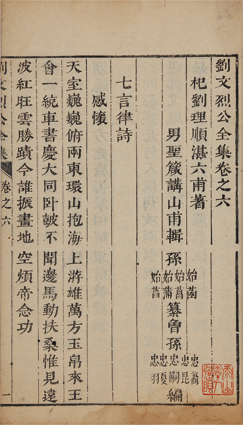 劉文烈公全集卷之六
杞劉理順湛六甫著
男聖箴講山甫輯
孫始菡
始菖
始蒲
始菖
纂曾孫忠裔
忠昆
忠嗣
忠夏
忠羽
編
七言律詩
感懷
天室巍巍俯兩東環山抱海上將雄萬方玉帛來王
會一統車書慶大同臥皷不聞邊馬動扶桑惟見遠
波紅旺雲勝蹟今誰振畫地空煩帝念功
劉文烈公全集
卷之六
一